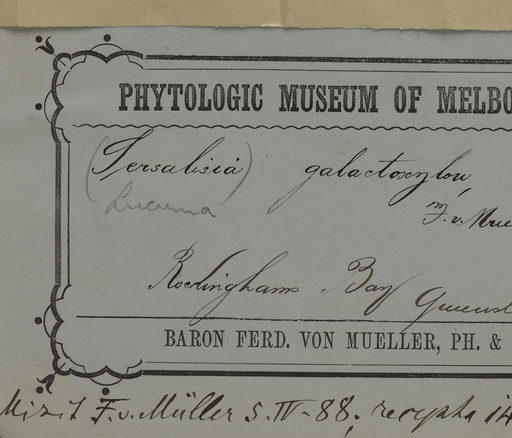 PHYTOLOGIC MUSEUM OF MELBO
(Sersalisia) galactoxylon,
Lucuma
F. v. Mue
Rockinghams Bay Queensl
BARON FERD. VON MUELLER, PH. &
Misit F. v. Müller s. IV-88, recepta 14